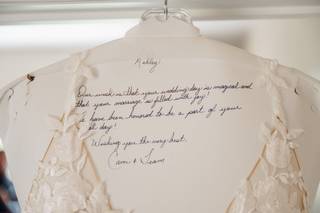 Ashley,
Our wish is that your wedding day is magical and
that your marriage is filled with joy!
have been honored to be a part of your
day!
Wishing you the very best,
Cami & Team